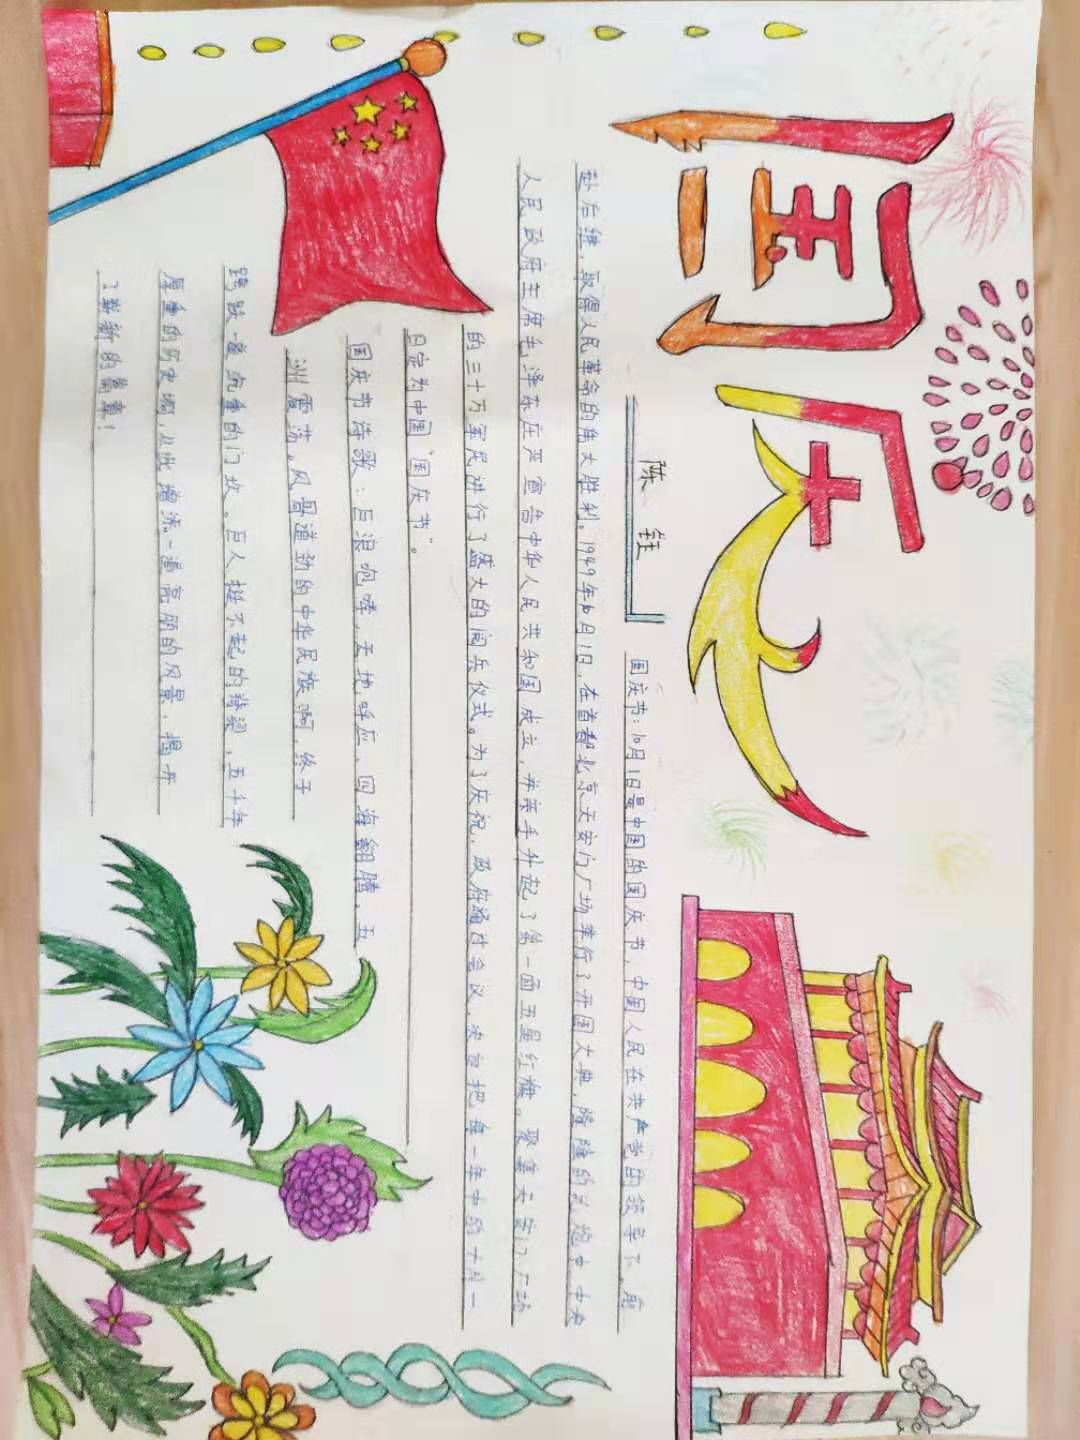 国庆
陈 钰
国庆节：10月1日是中国的国庆节，中国人民在共产党的领导下，前
赴后继，取得人民革命的伟大胜利。1949年10月1日，在首都北京天安门广场举行了开国大典，隆隆的礼炮中 中央
人民政府主席毛泽东庄严宣告中华人民共和国成立，并亲手升起了第一面五星红旗。聚集天安门广场
的三十万军民进行了盛大的阅兵仪式。为了庆祝，政府通过会议，决定把每一年中的十月一
日定为中国“国庆节”。
国庆节诗歌：巨浪咆哮，天地呼应，四海翻腾，五
洲震荡。风骨遒劲的中华民族啊，终于
跨跃一座沉重的门坎。巨人挺不起的脊梁，五千年
厚重的历史啊，从此增添一道亮丽的风景，揭开
了崭新的篇章！